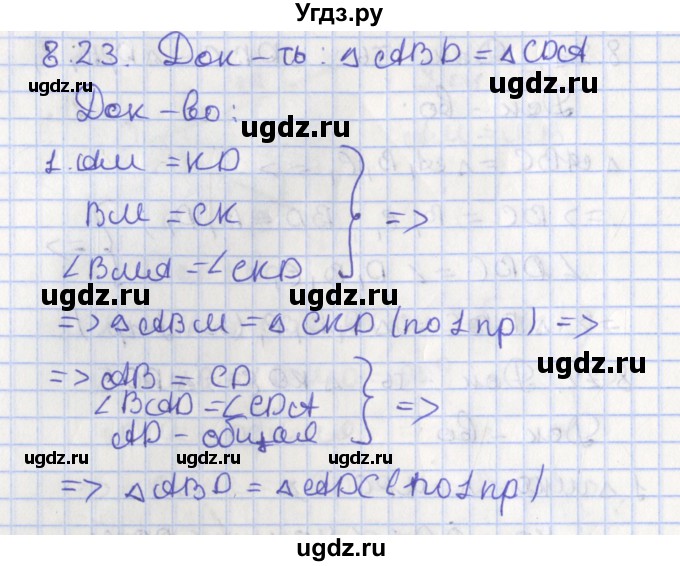 Угдз.ру
8.23. Док-ть: △ABD = △CDA
Док-во:
ugdz.ru
ugdz.ru
1. AM = KD
ugdz.ru
ugdz.ru
BM = CK
=>
∠BMA = ∠CKD
ugdz.ru
ugdz.ru
=> △ABM = △CKD (по 1 пр) =>
ugdz.ru
=> AB = CD
∠BAD = ∠CDA
=>
AD - общая
ugdz.ru
ugdz.ru
ugdz.ru
=> △ABD = △ADC (по 1 пр)
ugdz.ru